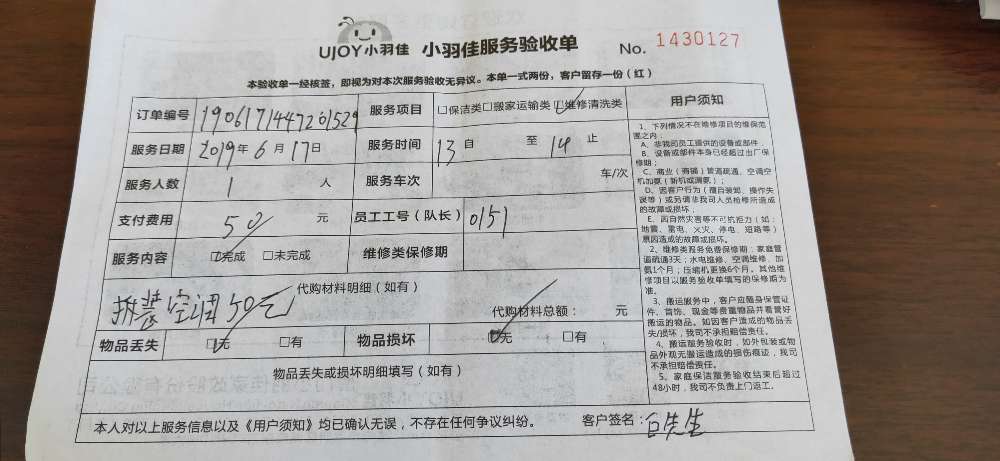 UJOY小羽佳 小羽佳服务验收单 No. 1430127
本验收单一经核签，即视为对本次服务验收无异议。本单一式两份，客户留存一份（红）
订单编号 190617144720152 服务项目 □保洁类□搬家运输类□维修清洗类 用户须知
服务日期 2019年6月17日 服务时间 13 自 至 14 止
服务人数 1 人 服务车次 车/次
支付费用 50 元 员工工号（队长） 0151
服务内容 □完成 □未完成 维修类保修期
代购材料明细（如有）
拆装空调50元 代购材料总额： 元
物品丢失 □无 □有 物品损坏 □无 □有
物品丢失或损坏明细填写（如有）
本人对以上服务信息以及《用户须知》均已确认无误，不存在任何争议纠纷。 客户签名：白先生
1、下列情况不在维修项目的维保范
围之内：
A、非我司员工提供的设备或部件，
B、设备或部件本身已经超过出厂保
修期；
C、商业（商铺）管道疏通、空调空
机加氨（新机或漏氨）；
D、因客户行为（擅自装卸、操作失
误等）或另请非我司人员检修所造成
的故障或损坏；
E、因自然灾害等不可抗拒力（如：
地震、雷电、火灾、停电、短路等）
原因造成的故障或损坏。
2、维修类服务免费保修期：家庭管
道疏通3天；水电维修、空调维修、加
氨1个月；压缩机更换6个月。其他维
修项目以服务验收单填写的保修期为
准。
3、搬运服务中，客户应随身保管证
件、首饰、现金等贵重物品并看管好
搬运的物品。如因客户造成的物品丢
失/损坏，我司不承担赔偿责任。
4、搬运服务验收时，如外包装或物
品外观无搬运造成的损伤痕迹，我司
不承担赔偿责任。
5、家庭保洁服务验收结束后超过
48小时，我司不负责上门返工。